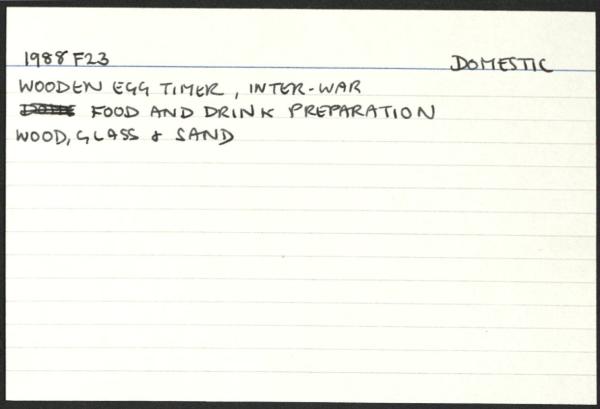 1988 F23 DOMESTIC
WOODEN EGG TIMER, INTER-WAR
FOOD AND DRINK PREPARATION
WOOD, GLASS & SAND